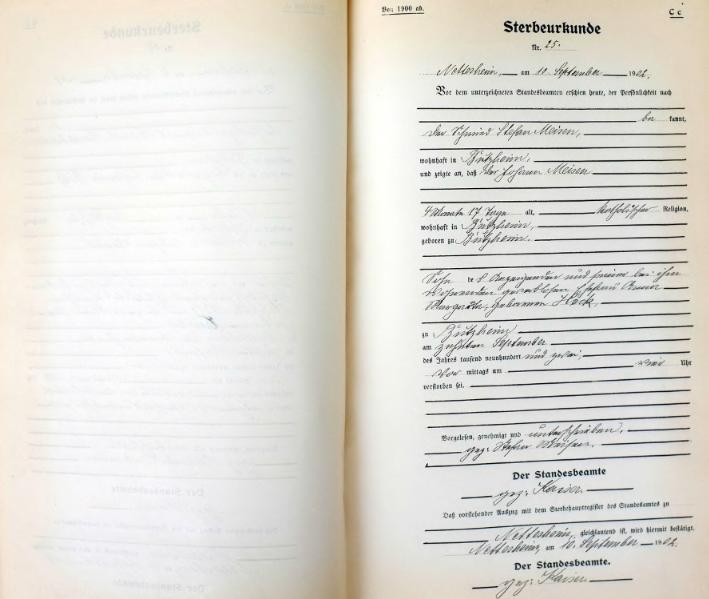 Vor 1900 ab.
C c
Sterbeurkunde
Nr. 25.
Nettersheim, am 10. September 1902.
Vor dem unterzeichneten Standesbeamten erschien heute, der Persönlichkeit nach
be kannt,
der Schmied Stefan Meisen,
wohnhaft in Bützheim,
und zeigte an, daß der Johann Meisen
4 Monate 17 Tage alt, katholischer Religion,
wohnhaft in Bützheim,
geboren zu Bützheim.
Sohn de s Anzeigenden und seiner bei ihm
wohnenden Ehefrau Anna
Margaretha, geborenen Heck,
zu Bützheim
am zehnten September
des Jahres tausend neunhundert und zwei,
Vor mittags um Uhr
verstorben sei.
Vorgelesen, genehmigt und unterschrieben.
gez: Stefan Meisen.
Der Standesbeamte
gez: Kaiser.
Daß vorstehender Auszug mit dem Sterbehauptregister des Standesamtes zu
Nettersheim, gleichlautend ist, wird hiermit bestätigt.
Nettersheim, am 10. September 1902.
Der Standesbeamte.
gez: Kaiser